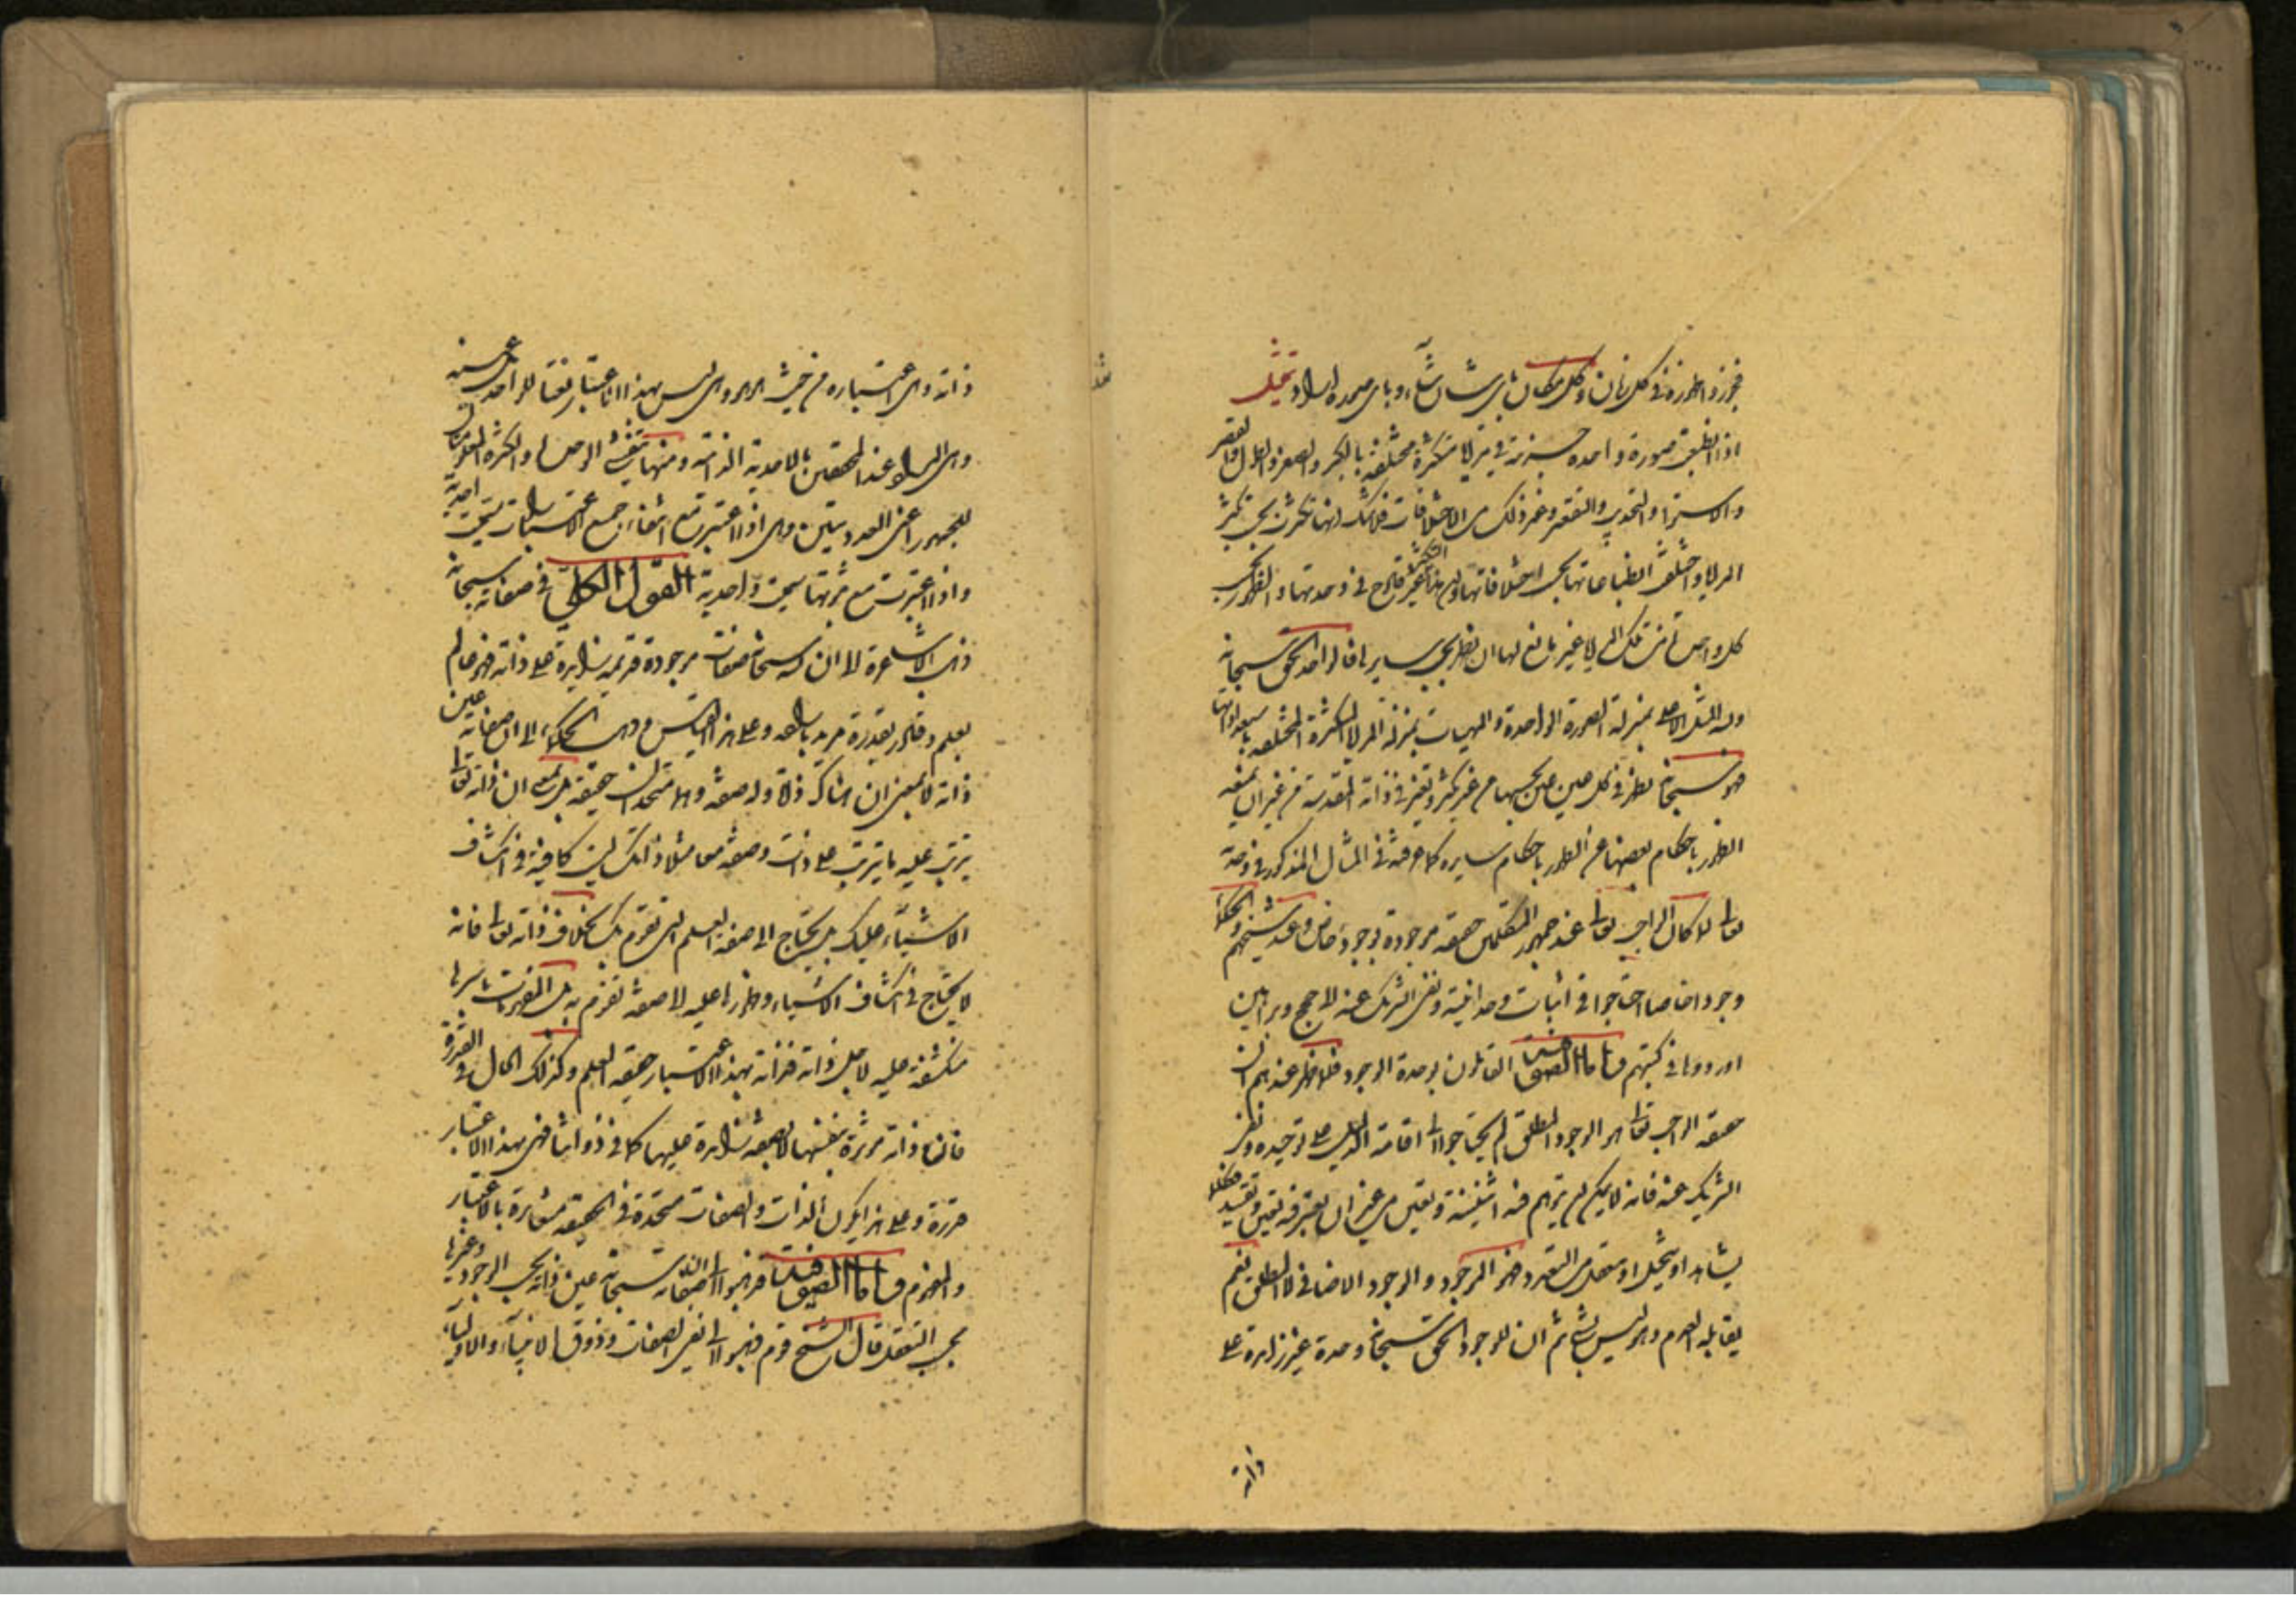 فجوزوا ظهوره في كل زمان وكل مكان باى شان شاء وباى صورة اراد تمثيل
اذا انطبعت صورة واحده جزئية في مرايا متكثرة مختلفة بالكبر والصغر والطول والقصر
والاستواء والتحديب والتقعير وغير ذلك من الاختلافات فلا شك انها تكثرت بحسب تكثر
المرايا واختلفت انطباعاتها بحسب اختلافاتها وان هذا التكثر غير قادح في وحدتها والظهور بحسب
كل واحدة من تلك المرايا غير مانع لها ان تظهر بحسب سايرها فالواحد الحق سبحانه
ولله المثل الاعلى بمنزلة الصورة الواحدة والمهيات بمنزلة المرايا المتكثرة المختلفة باستعداداتها
فهو سبحانه يظهر في كل عين عين بحسبها من غير تكثر وتغير في ذاته المقدسة من غير ان يمنعه
الظهور باحكام بعضها عن الظهور باحكام سايره كما عرفته في المثال المذكور في وحدته
تعالى لما كان الواجب تعالى عند جمهور المتكلمين حقيقه موجودة بوجود خاص وعند شيخهم والحكماء
وجودا خاصا احتاجوا في اثبات وحدانيته ونفى الشريك عنه الى حجج وبراهين
اوردوها في كتبهم واما الصوفية القائلون بوحدة الوجود فلما ظهر عندهم ان
حقيقة الواجب تعالى هو الوجود المطلق لم يحتاجوا الى اقامة الدليل على توحيده ونفى
الشريك عنه فانه لا يمكن ان يتوهم فيه اثنينية وتعين من غير ان يعتبر فيه تعين وتقييد فكلما
يشاهد او يتخيل او يتعقل من المتعدد فهو الموجود والوجود الاضافى لا المطلق نعم
يقابله العدم وهو ليس بشئ ثم ان للوجود الحق سبحانه وحدة غير زايدة على
ذاته
ذاته وهى اعتباره من حيث هو هو وهى ليس بهذا الاعتبار نعتا للواحد بل عينه
وهى المراد عند المحققين بالاحدية الذاتية ومنها تنتشئ الوحدة والكثرة المعلومتان
للجمهور اعنى العدديتين وهى اذا اعتبرت مع انتفاء جميع الاعتبارات سميت احدية
واذا اعتبرت مع ثبوتها سميت واحدية القول الكلى في صفاته سبحانه
ذهب الاشاعرة الى ان له سبحانه صفات موجودة قديمة زايدة على ذاته فهو عالم
بعلم وقادر بقدرة مريد بارادة وعلى هذا القياس وذهب الحكماء الى ان صفاته عين
ذاته لا بمعنى ان هناك ذاتا وله صفة وهما متحدان حقيقة بل بمعنى ان ذاته تعالى
يترتب عليه ما يترتب على ذات وصفة معا مثلا ذاتك ليست كافية في انكشاف
الاشياء عليك بل تحتاج الى صفة العلم التى تقوم بك بخلاف ذاته تعالى فانه
لا يحتاج في انكشاف الاشياء وظهورها عليه الى صفة تقوم به بل المفهومات باسرها
منكشفة عليه لاجل ذاته فذاته بهذا الاعتبار حقيقة العلم وكذلك الحال في القدرة
فان ذاته مؤثرة بنفسها لا بصفة زايدة عليها كما في ذواتنا فهى بهذا الاعتبار
قدرة وعلى هذا يكون الذات والصفات متحدة في الحقيقة متغايرة بالاعتبار
والمفهوم واما الصوفية فذهبوا الى ان صفاته سبحانه عين ذاته بحسب الوجود وغيرها
بحسب التعقل قال الشيخ قوم ذهبوا الى نفى الصفات وذوق الانبياء والاولياء